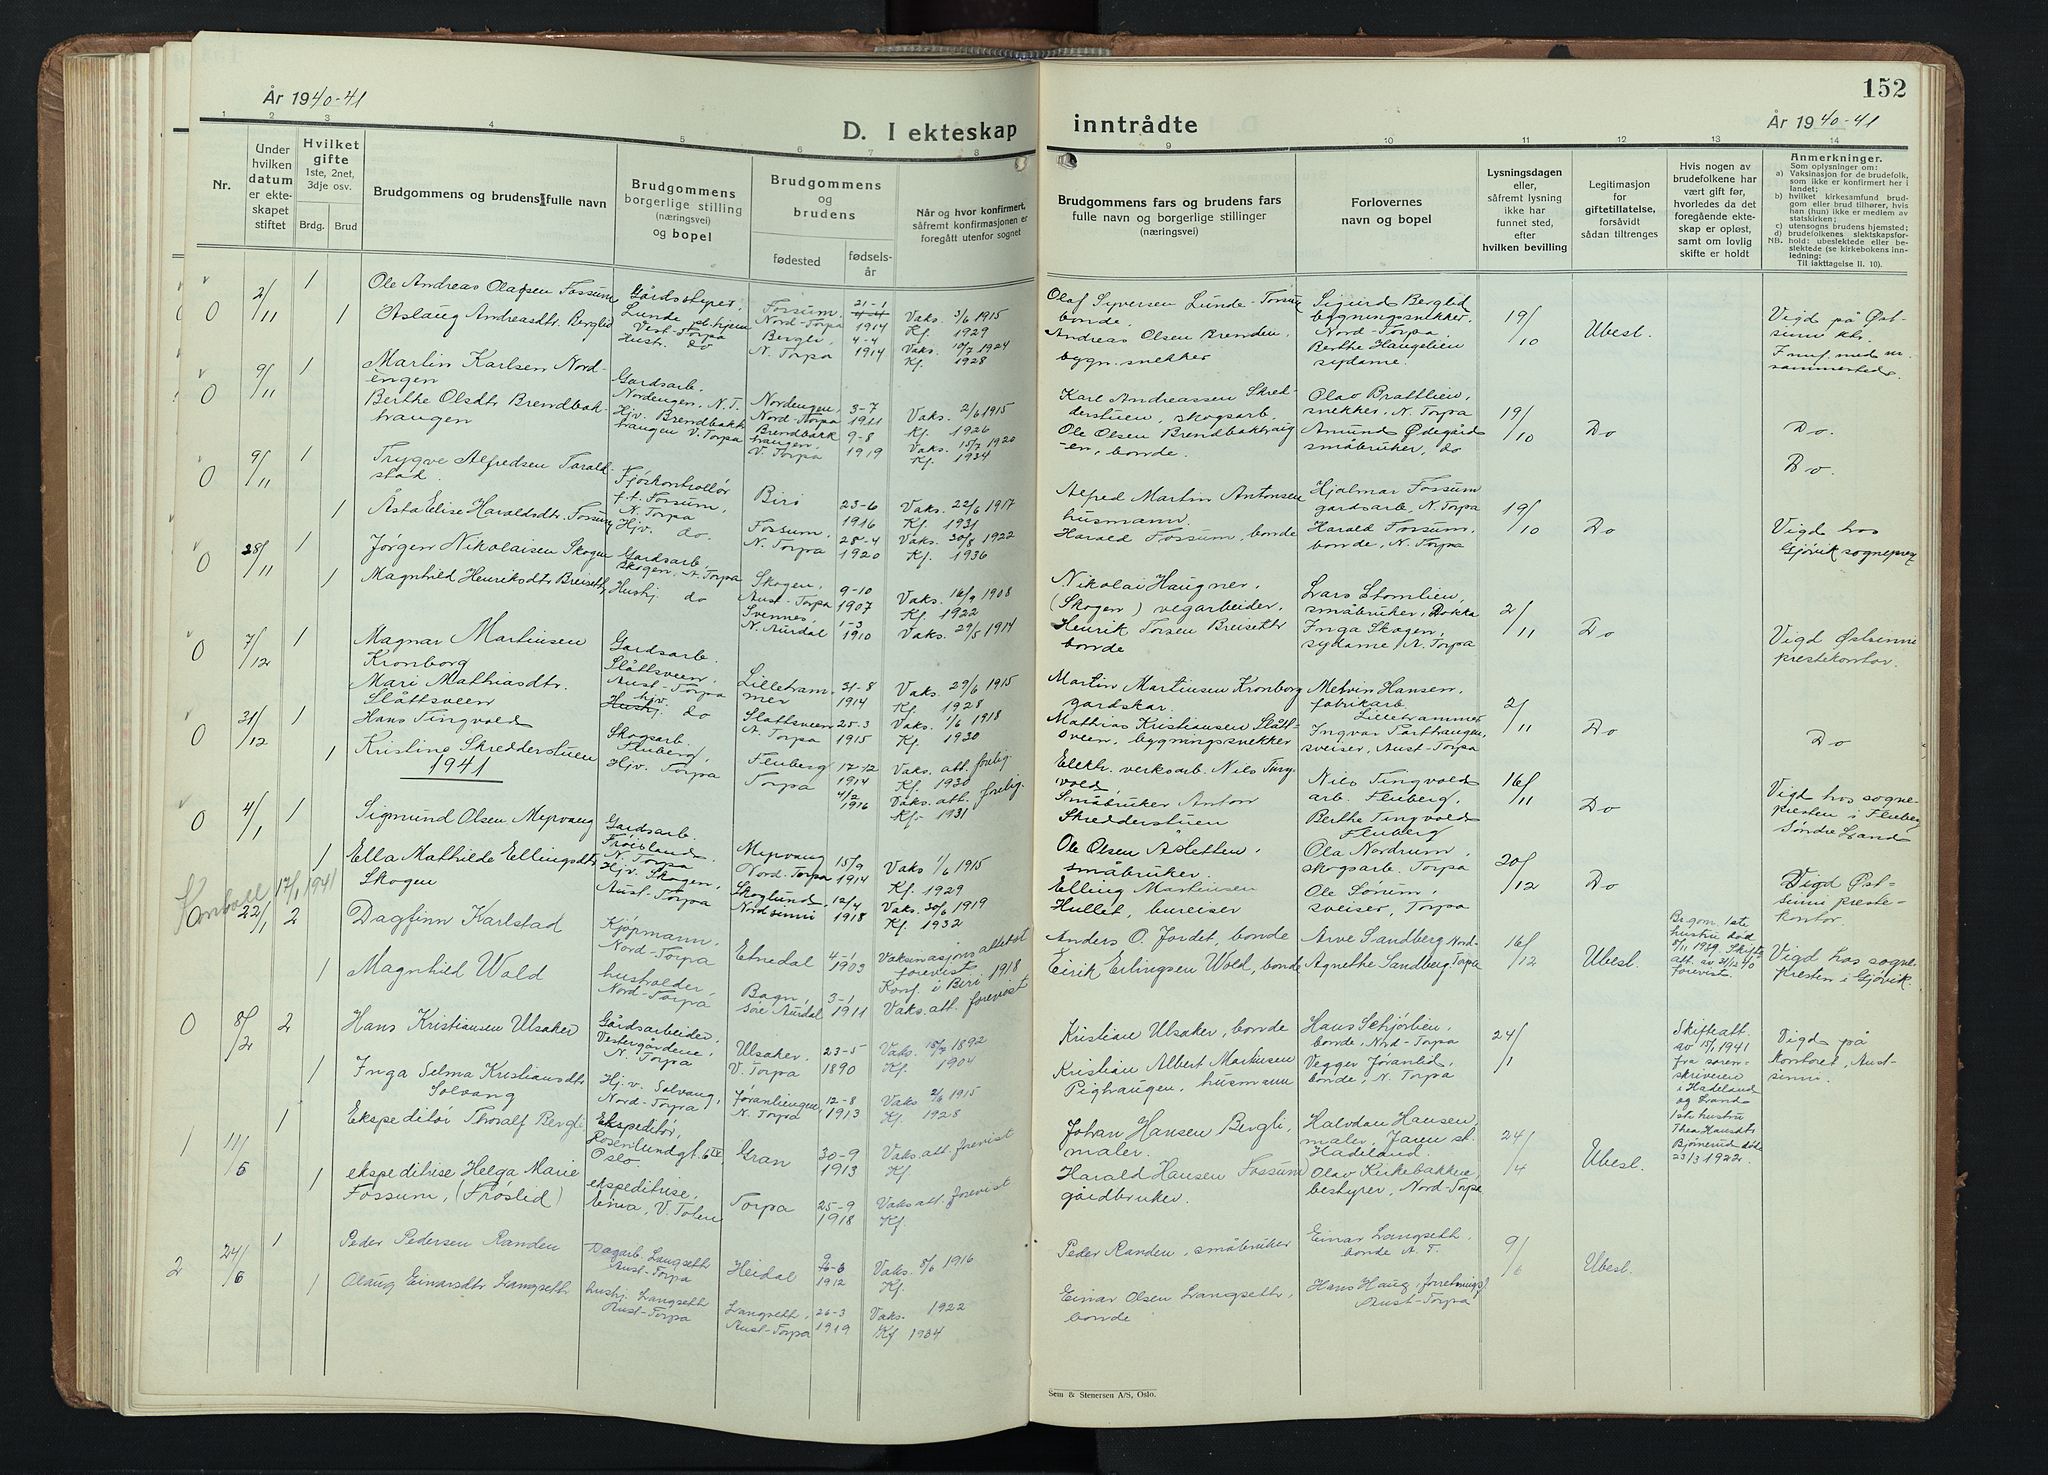 År 1940-41
D. I ekteskap
1 2 3 4 5 6 7 8
Nr.
Under hvilken datum er ekteskapet stiftet
Hvilket gifte
1ste, 2net, 3dje osv.
Brdg. Brud
Brudgommens og brudens fulle navn
Brudgommens borgerlige stilling (næringsvei) og bopel
Brudgommens og brudens
fødested fødselsår
Når og hvor konfirmert, såfremt konfirmasjonen er foregått utenfor sognet
2/11 1 Ole Andreas Olafsen Fossum
Gårdsstyrer Lunde
Vest-Torpa
Fossum, Nord-Torpa 21-1 1914
Vaks. 3/6 1915
Kf. 1929
0 1 Aslaug Andreasdtr. Berglid
Hustr. do
Bergli, N. Torpa 4-4 1914
Vaks. 10/7 1924
Kf. 1928
0 9/11 1 Martin Karlsen Nordengen
Gardsarb. Nordengen, N.T.
Nordengen, Nord-Torpa 3-7 1911
Vaks. 2/6 1915
Kf. 1926
Berthe Olsdtr Brendbakhaugen
Hjv. Brendbakhaugen V. Torpa
Brendbakkhaugen V. Torpa 9-8 1919
Vaks. 15/7 1920
Kf. 1934
0 9/11 1 Trygve Alfredsen Taralstad.
Fjøskontrollør f.t. Fossum, N. Torpa
Biri 23-6 1916
Vaks. 22/6 1917
Kf. 1931
1 Åsta Elise Haraldsdtr. Fossum
Hjv. do.
Fossum, N. Torpa 28-4 1920
Vaks. 30/8 1922
Kf. 1936
0 28/11 1 Jørgen Nikolaisen Skogen
Gardsarb. Skogen, A. Torpa
Skogen, Aust-Torpa 9-10 1907
Vaks. 16/9 1908
Kf. 1922
1 Magnhild Henriksdtr Breiseth
Hushj. do
Svennes, N. Aurdal 1-3 1910
Vaks. 29/5 1914
0 7/12 1 Magnar Martinsen Kronborg
Gardsarb. Slåttsveen Aust-Torpa
Lillehammer 31-8 1914
Vaks. 29/6 1915
Kf. 1928
Mari Mathiasdtr. Slåttsveen
Hjv. do
Slåttsveen A. Torpa 25-3 1915
Vaks. 1/6 1918
Kf. 1930
0 31/12 1 Hans Tingvold
Skogsarb. Fluberg
Fluberg 17-12 1914
Vaks. att. forelig.
Kf. 1930
1 Kristine Skredderstuen
Hjv. Torpa
Torpa 4/2 1916
Vaks. att. forelig.
Kf. 1931
1941
0 4/1 1 Sigmund Olsen Myrvang
Gardsarb. Frøisland, N. Torpa
Myrvang Nord-Torpa 15/9 1914
Vaks 1/6 1915
Kf. 1929
1 Ella Mathilde Ellingsdtr Skogen
Hjv. Skogen, Aust-Torpa
Skoglund, Nordsinni 12/4 1918
Vaks. 30/6 1919
Kf. 1932
17/1 1941
0 22/1 2 Dagfinn Karlstad
Kjøpmann, Nord-Torpa
Etnedal 4-1 1903
Vaksinasjonsattest forevist
Konf. i Biri 1918
1 Magnhild Wold
husholder, Nord-Torpa
Bagn, Søre Aurdal 3-1 1911
Vaks. att. forevist
0 8/2 2 Hans Kristiansen Ulsaker
Gårdsarbeider, Vestergårdene, N. Torpa
Ulsaker, V. Torpa 23-5 1890
Vaks. 15/7 1892
Kf. 1904
1 Inga Selma Kristiansdtr Solvang
Hj.v. Solvang, Nord-Torpa
Jøranliengen, N. Torpa 12-8 1913
Vaks. 2/6 1915
Kf. 1928
1 11/5 1 Ekspeditør Thoralf Bergli
Ekspeditør, Rosenlundgt. 6 IV, Oslo
Gran 30-9 1913
Vaks. att. forevist
Kf
1 ekspeditrise Helga Marie Fossum, (Frøslid)
ekspeditrise, Eina, V. Toten
Torpa 25-9 1918
Vaks att. forevist
Kf.
2 24/6 1 Peder Pedersen Randen
Dagarb. Langseth Aust-Torpa
Heidal 1912
Vaks. 8/6 1916
Kf.
1 Olaug Einarsdtr Langseth
hushj. Langseth Aust-Torpa
Langseth, Aust-Torpa 26-3 1919
Vaks. 1922
Kf 1934
152
inntrådte
År 1940-41
9 10 11 12 13 14
Brudgommens fars og brudens fars fulle navn og borgerlige stillinger (næringsvei)
Forlovernes navn og bopel
Lysningsdagen eller, såfremt lysning ikke har funnet sted, efter hvilken bevilling
Legitimasjon for giftetillatelse, forsåvidt sådan tiltrenges
Hvis nogen av brudefolkene har vært gift før, hvorledes da det foregående ekteskap er opløst, samt om lovlig skifte er holdt
Anmerkninger.
Som oplysninger om:
a) Vaksinasjon for de brudefolk, som ikke er konfirmert her i landet;
b) hvilket kirkesamfund brudgom eller brud tilhører, hvis han (hun) ikke er medlem av statskirken;
c) utensogns brudens hjemsted;
d) brudefolkenes slektskapsforhold: ubeslektede eller beslektede (se kirkebokens innledning:
NB. Til iakttagelse II. 10).
Olaf Syversen Lunde-Fossum bonde.
Sigurd Berglid bygningssnekker, Nord-Torpa.
19/10 Ubesl.
Vigd på Østsinni kts.
Andreas Olsen Brenden, bygn. snekker
Berthe Haugelien sydame.
Karl Andreassen Skredderstuen, skogsarb.
Olav Brattlien, snekker, N. Torpa
19/10 Do
Do.
Ole Olsen Brendbakhaugen, bonde.
Amund Ødegård småbruker, do
Do.
Alfred Martin Antonsen husmann.
Hjalmar Fossum gardsarb, N. Torpa
19/10 Do
Vigd hos Gjøvik sogneprest
Harald Fossum, bonde
Harald Fossum, bonde, N. Torpa
Nikolai Haugner, (Skogen) vegarbeider.
Lars Stomlien, småbruker, Dokka
2/11 Do
Vigd Østsinni prestekontor.
Henrik Torsen Breiseth bonde
Inga Skogen, sydame A. Torpa
Martin Martinsen Kronborg gardskar.
Melvin Hansen, fabrikarb. Lillehammer
2/11 Do
Do
Mathias Kristiansen Slåttsveen, bygningssnekker
Ingvar Parthaugen, sveiser, Aust-Torpa
Elektr. verksarb. Nils Tingvold,
Nils Tingvold arb. Fluberg,
16/11 Do
Vigd hos sognepresten i Fluberg Søndre Land
Småbruker Anton Skredderstuen
Berthe Tingvold Fluberg
Ole Olsen Asletten, småbruker.
Ola Nordrum, skogsarb. Torpa
20/12 Do
Vigd Østsinni prestekontor.
Elling Martinsen Hullet, bureiser
Ole Sørum, sveiser, Torpa
Anders O. Jordet, bonde
Arve Sandberg Nord-
16/12 Ubesl.
Br.gom. 1ste hustru død 8/11 1939. Skifteatt. av 31/12 40 forevist.
Vigd hos sognepresten i Gjøvik.
Eirik Erlingsen Wold, bonde
Agnethe Sandberg, Torpa
Kristian Ulsaker, bonde
Hans Schjørlien, bonde, Nord-Torpa
24/1
Skifteatt. av 15/1 1941 fra sorenskriveren i Hadeland og Land
1ste hustru Thea Hansdtr Bjørnerud døde 23/3 1922
Vigd på kontoret, Austsinni.
Kristian Albert Markusen Pighaugen, husmann
Vegger Jøranlid, bonde, N. Torpa
Johan Hansen Bergli, maler.
Halvdan Hansen, maler, Jaren st. Hadeland
24/4 Ubesl.
Harald Hansen Fossum gårdbruker.
Olav Kirkebakken, bestyrer, Nord-Torpa
Peder Randen, småbruker
Einar Langseth, bonde A. T.
9/6 Ubesl.
Einar Olsen Langseth, bonde
Hans Haug, forretningsf. Aust-Torpa
Sem & Stenersen A/S, Oslo.